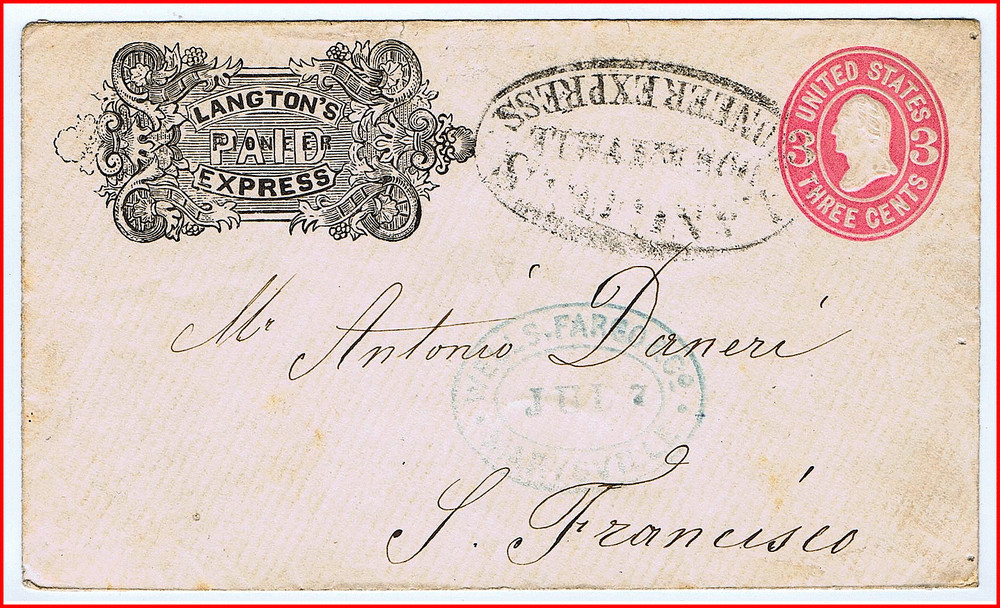 LANGTON'S
PIONEER
PAID
EXPRESS
PIONEER EXPRESS
UNITED STATES
3 3
THREE CENTS
Mr Antonio Daneri
WELLS. FARGO & Co.
JUL 7
S. Francisco